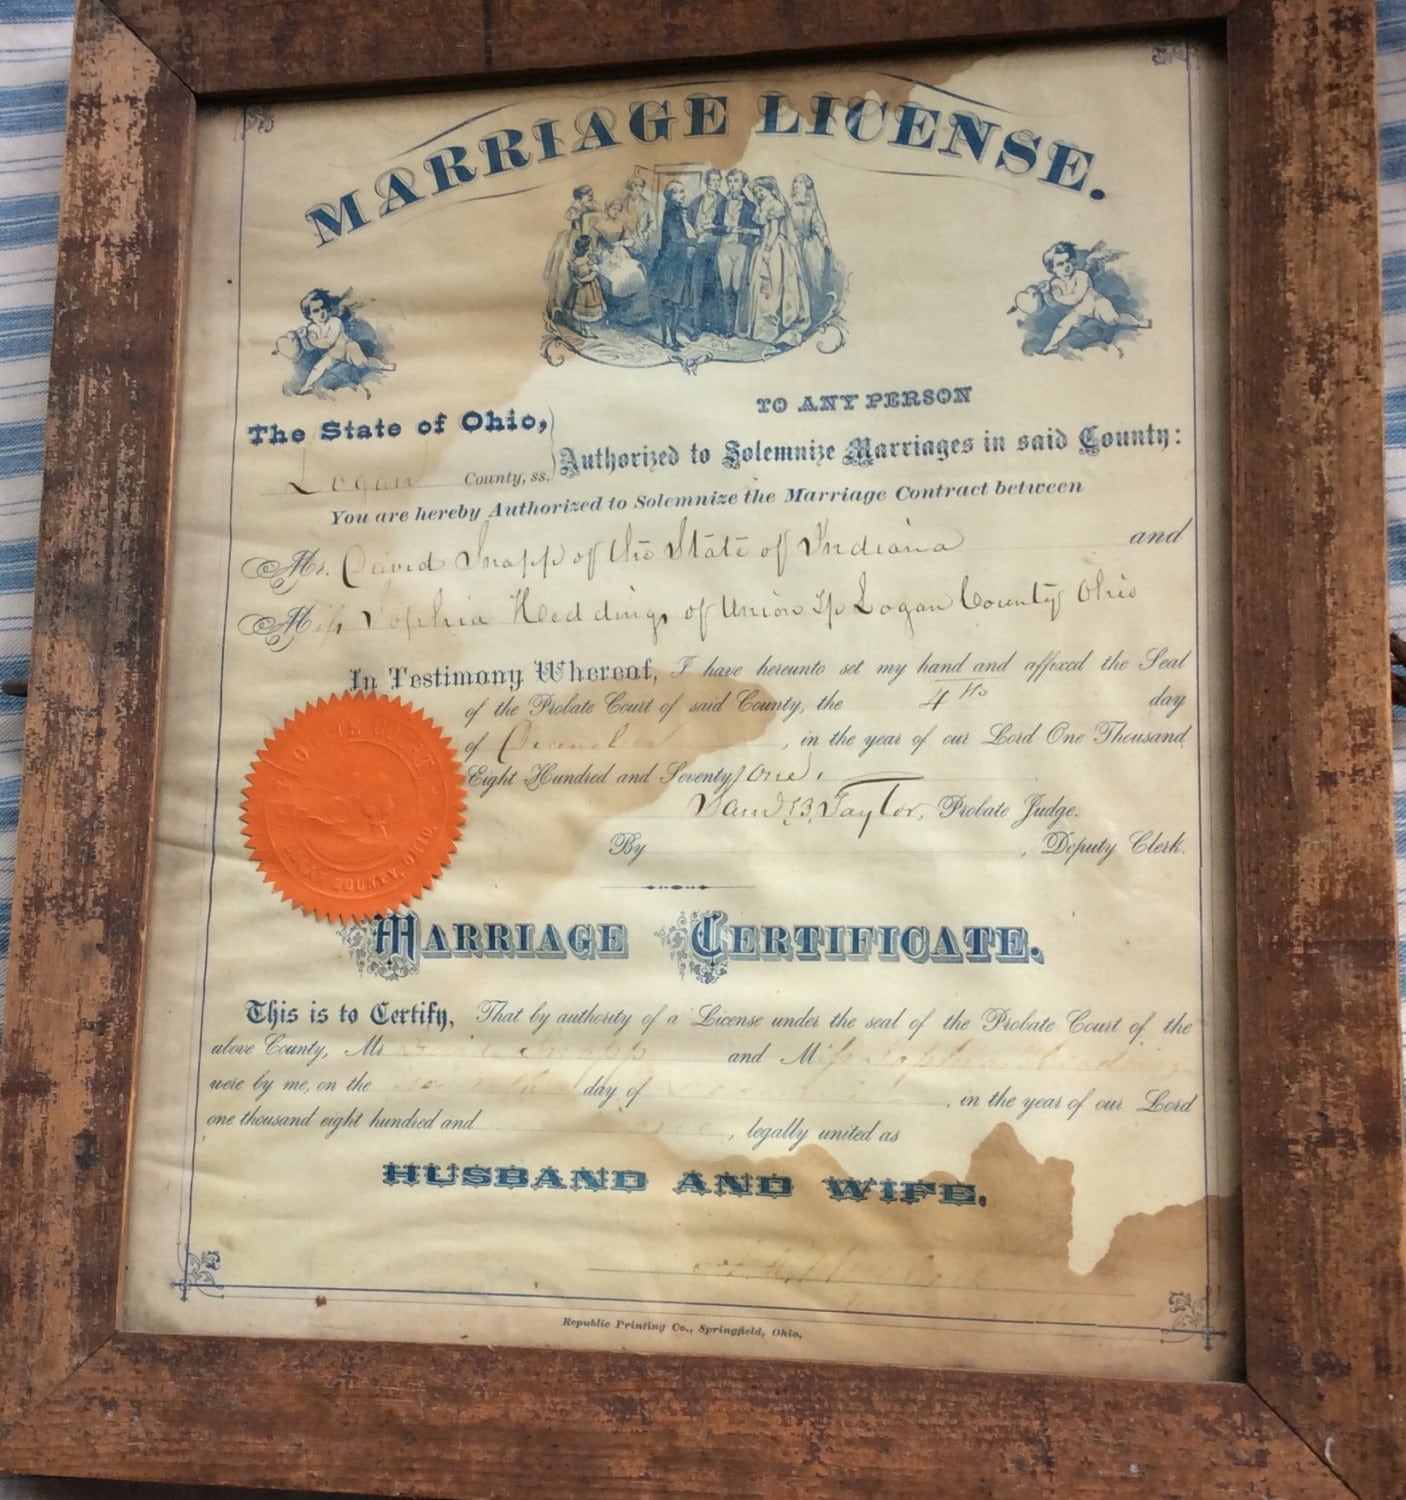 MARRIAGE LICENSE.
The State of Ohio,
Logan County, ss.
TO ANY PERSON
Authorized to Solemnize Marriages in said County:
You are hereby Authorized to Solemnize the Marriage Contract between
Mr. David Snapp of the State of Indiana and
Miss Sophia Heddings of Union Tp Logan County Ohio
In Testimony Whereof, I have hereunto set my hand and affixed the Seal
of the Probate Court of said County, the 4th day
of December, in the year of our Lord One Thousand
Eight Hundred and Seventy one.
Saml B. Taylor, Probate Judge.
By , Deputy Clerk.
COUNTY, OHIO.
MARRIAGE CERTIFICATE.
This is to Certify, That by authority of a License under the seal of the Probate Court of the
above County, Mr David Snapp and Miss Sophia
were by me, on the day of , in the year of our Lord
one thousand eight hundred and , legally united as
HUSBAND AND WIFE.
Republic Printing Co., Springfield, Ohio.